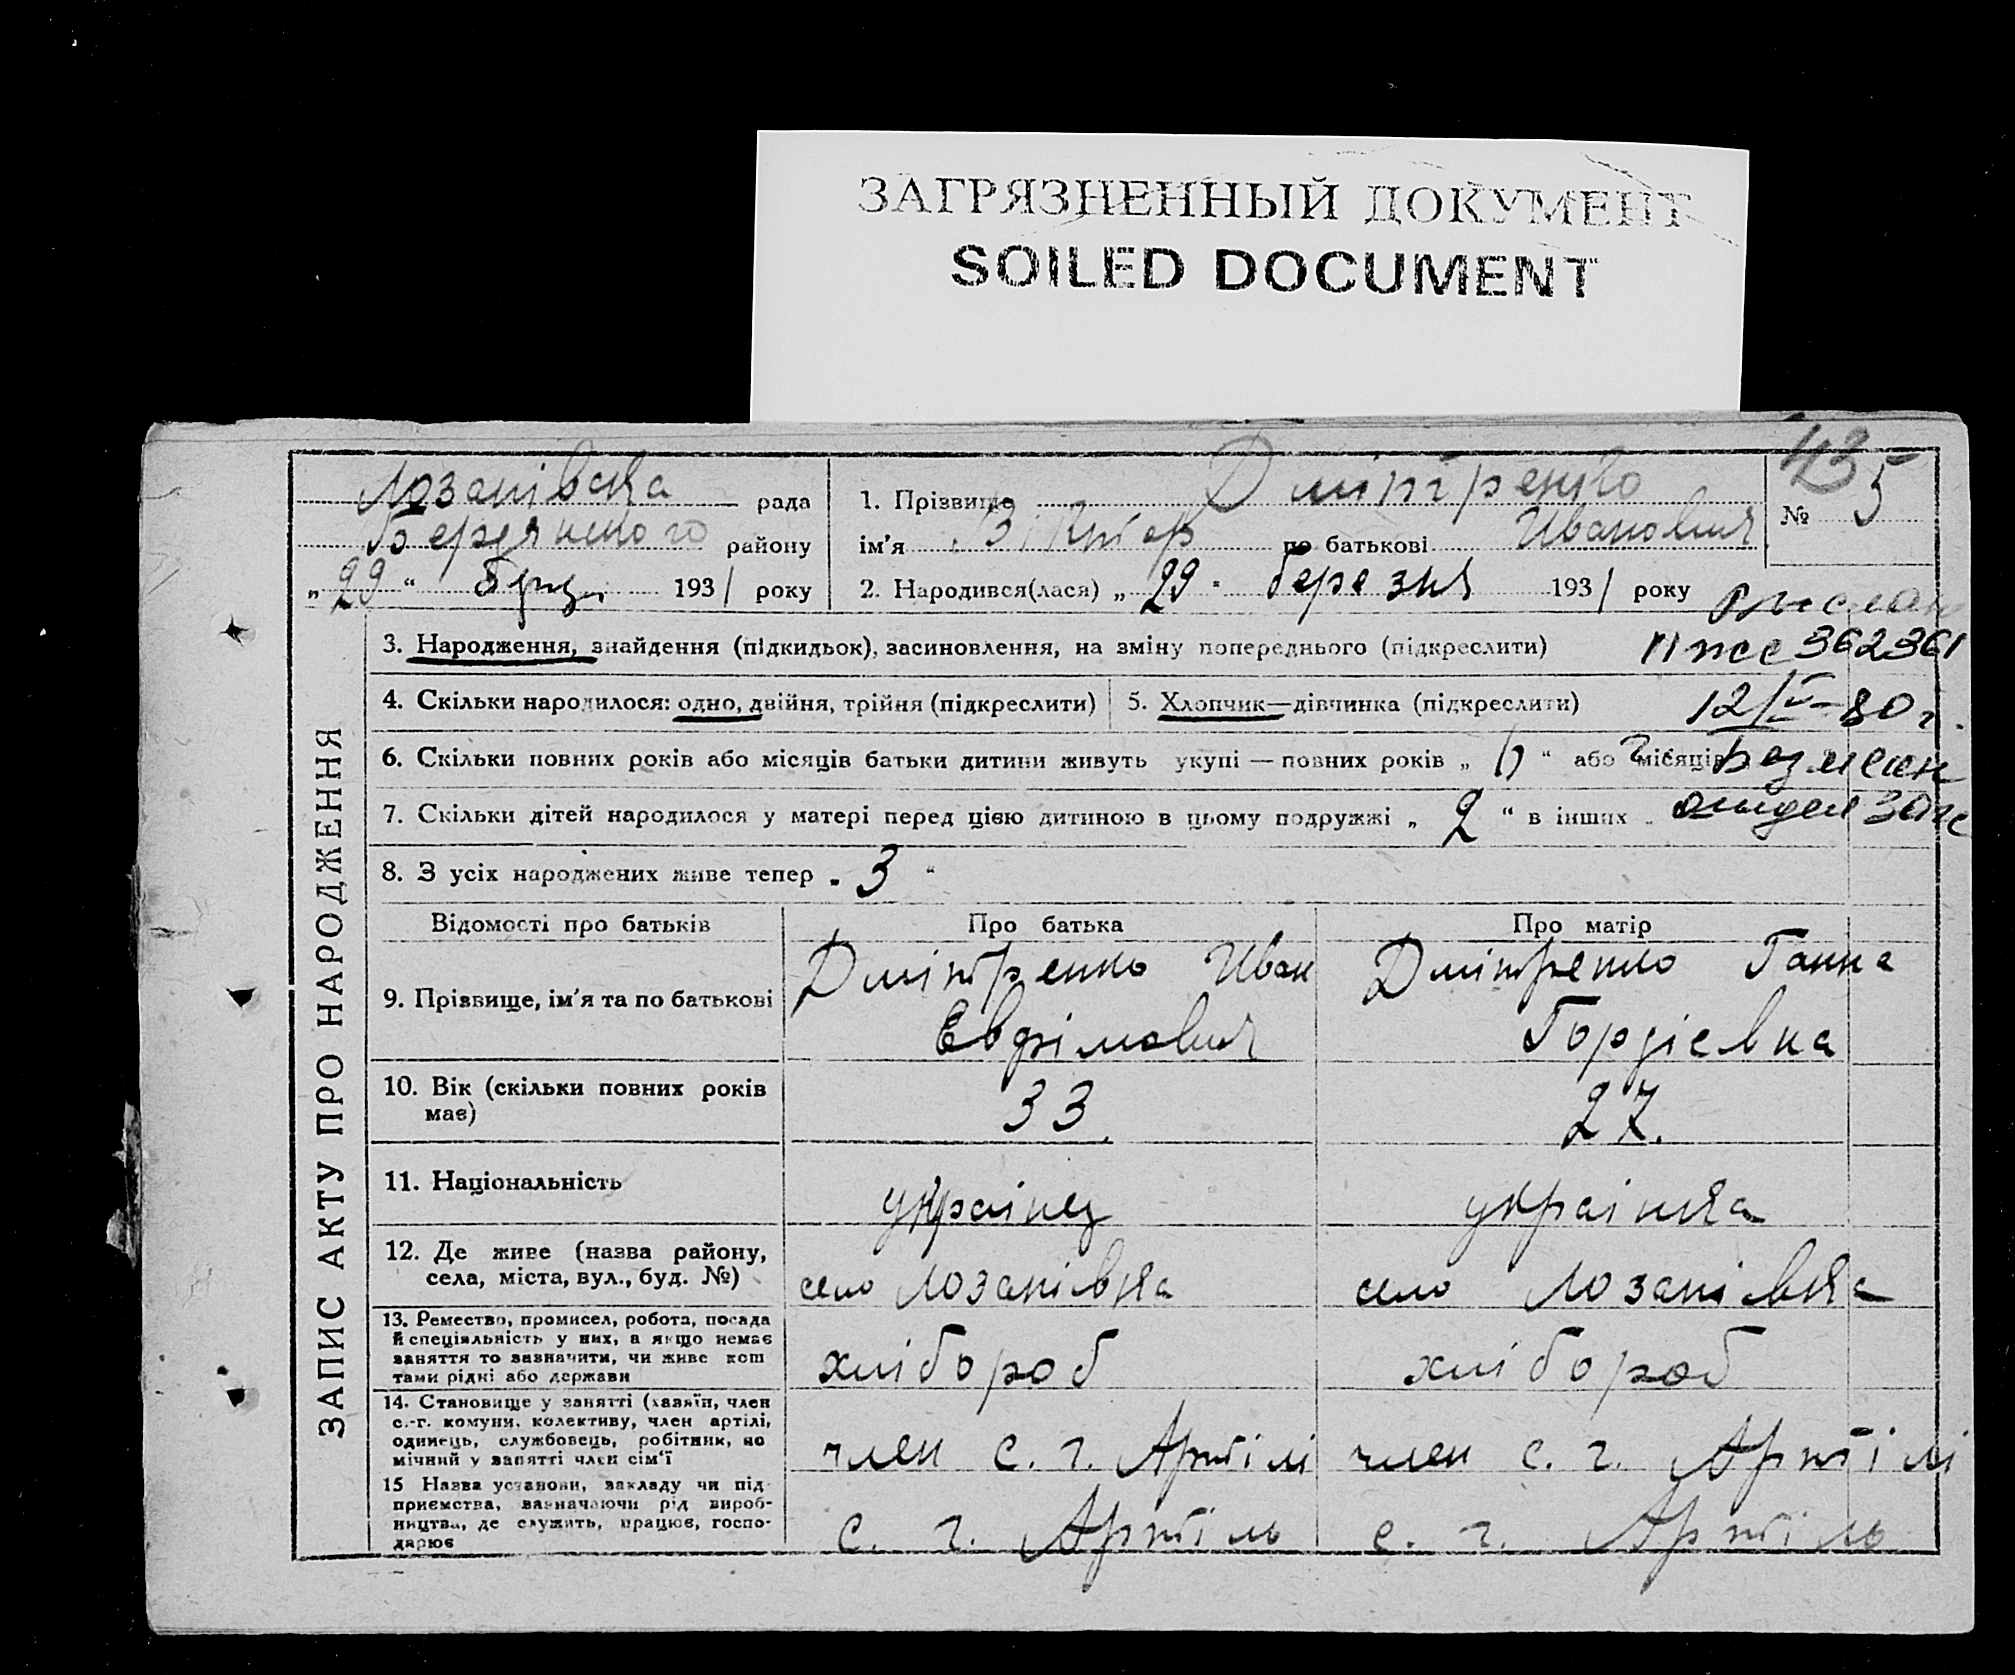 ЗАГРЯЗНЕННЫЙ ДОКУМЕНТ
SOILED DOCUMENT
43
Лозанівска рада
Бердянського району
„ 29 “ 1931 року
1. Прізвище Дмітренко
ім’я Віктор по батькові Иванович
№ 5
2. Народився(лася) „ 29 " березня 1931 року
Выслан
362361
12/IV-80 г.
3. Народження, знайдення (підкидьок), засиновлення, на зміну попереднього (підкреслити)
4. Скільки народилося: одно, двійня, трійня (підкреслити)
5. Хлопчик—дівчинка (підкреслити)
6. Скільки повних років або місяців батьки дитини живуть укупі — повних років „ “ або місяців
7. Скільки дітей народилося у матері перед цією дитиною в цьому подружжі „ 2 “ в інших „
8. З усіх народжених живе тепер „ 3 “
ЗАПИС АКТУ ПРО НАРОДЖЕННЯ
Відомості про батьків
Про батька
Про матір
9. Прізвище, ім’я та по батькові
Дмітренко Иван
Євдрімович
Дмітренко Ганна
Гордієвна
10. Вік (скільки повних років
має)
33.
27.
11. Національність
українец
українка
12. Де живе (назва району,
села, міста, вул., буд. №)
село Лозанівка
село Лозанівка
13. Ремество, промисел, робота, посада
й спеціяльність у них, а якщо немає
заняття то зазначити, чи живе кош
тами рідні або держави
хлібороб
хлібороб
14. Становище у занятті (хазяїн, член
с.-г. комуни, колективу, член артілі,
одинець, службовець, робітник, по
мічний у занятті член сім’ї
член с. г. Артілі
член с. г. Артілі
15 Назва установи, закладу чи під-
приємства, зазначаючи рід вироб-
ництва, де служить, працює, госпо-
дарює
с. г. Артіль
с. г. Артіль